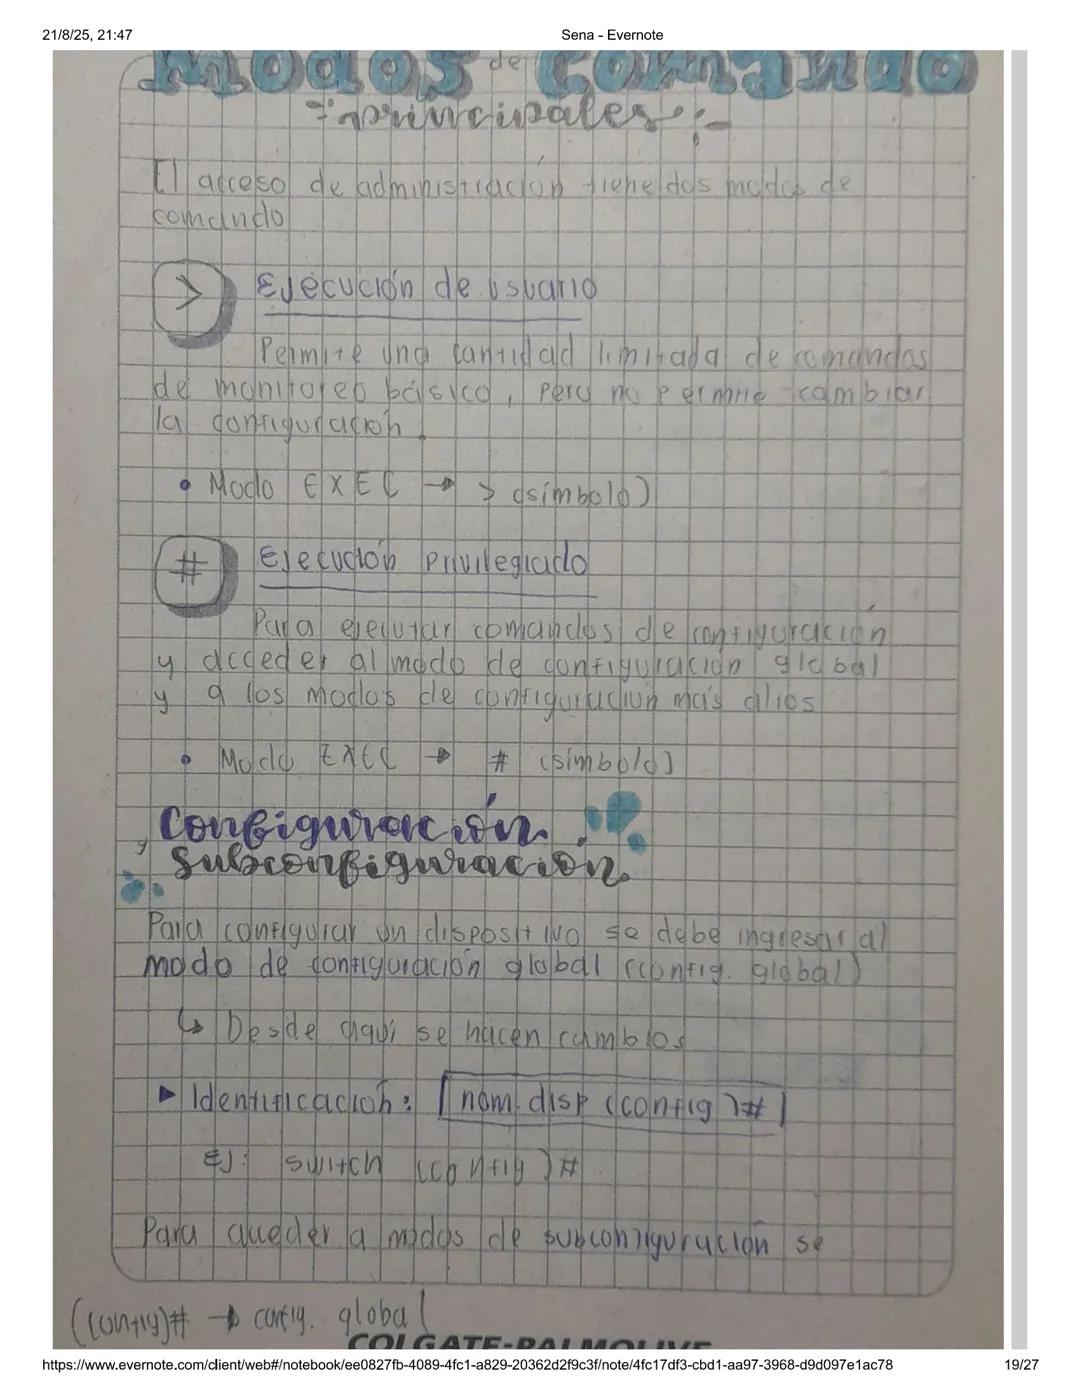 21/8/25, 21:47
Sena - Evernote
Modos de Comando
-: principales :-
El acceso de administración tiene dos modos de
comando
> Ejecución de usuario
Permite una cantidad limitada de comandos
de monitoreo básico, pero no permite cambiar
la configuración.
• Modo EXEC → > (símbolo)
# Ejecución Privilegiado
Para ejecutar comandos de configuración
y acceder al modo de configuración global
y a los modos de configuración más altos
• Modo EXEC → # (símbolo)
Configuración
y subconfiguración
Para configurar un dispositivo se debe ingresar al
modo de configuración global (config. global)
↳ Desde aquí se hacen cambios
▶ Identificación: nom. disp (config)#
EJ: switch (config)#
Para acceder a modos de subconfiguración se
(config)# → config. global
COLGATE-PALMOLIVE
https://www.evernote.com/client/web#/notebook/ee0827fb-4089-4fc1-a829-20362d2f9c3f/note/4fc17df3-cbd1-aa97-3968-d9d097e1ac78
19/27